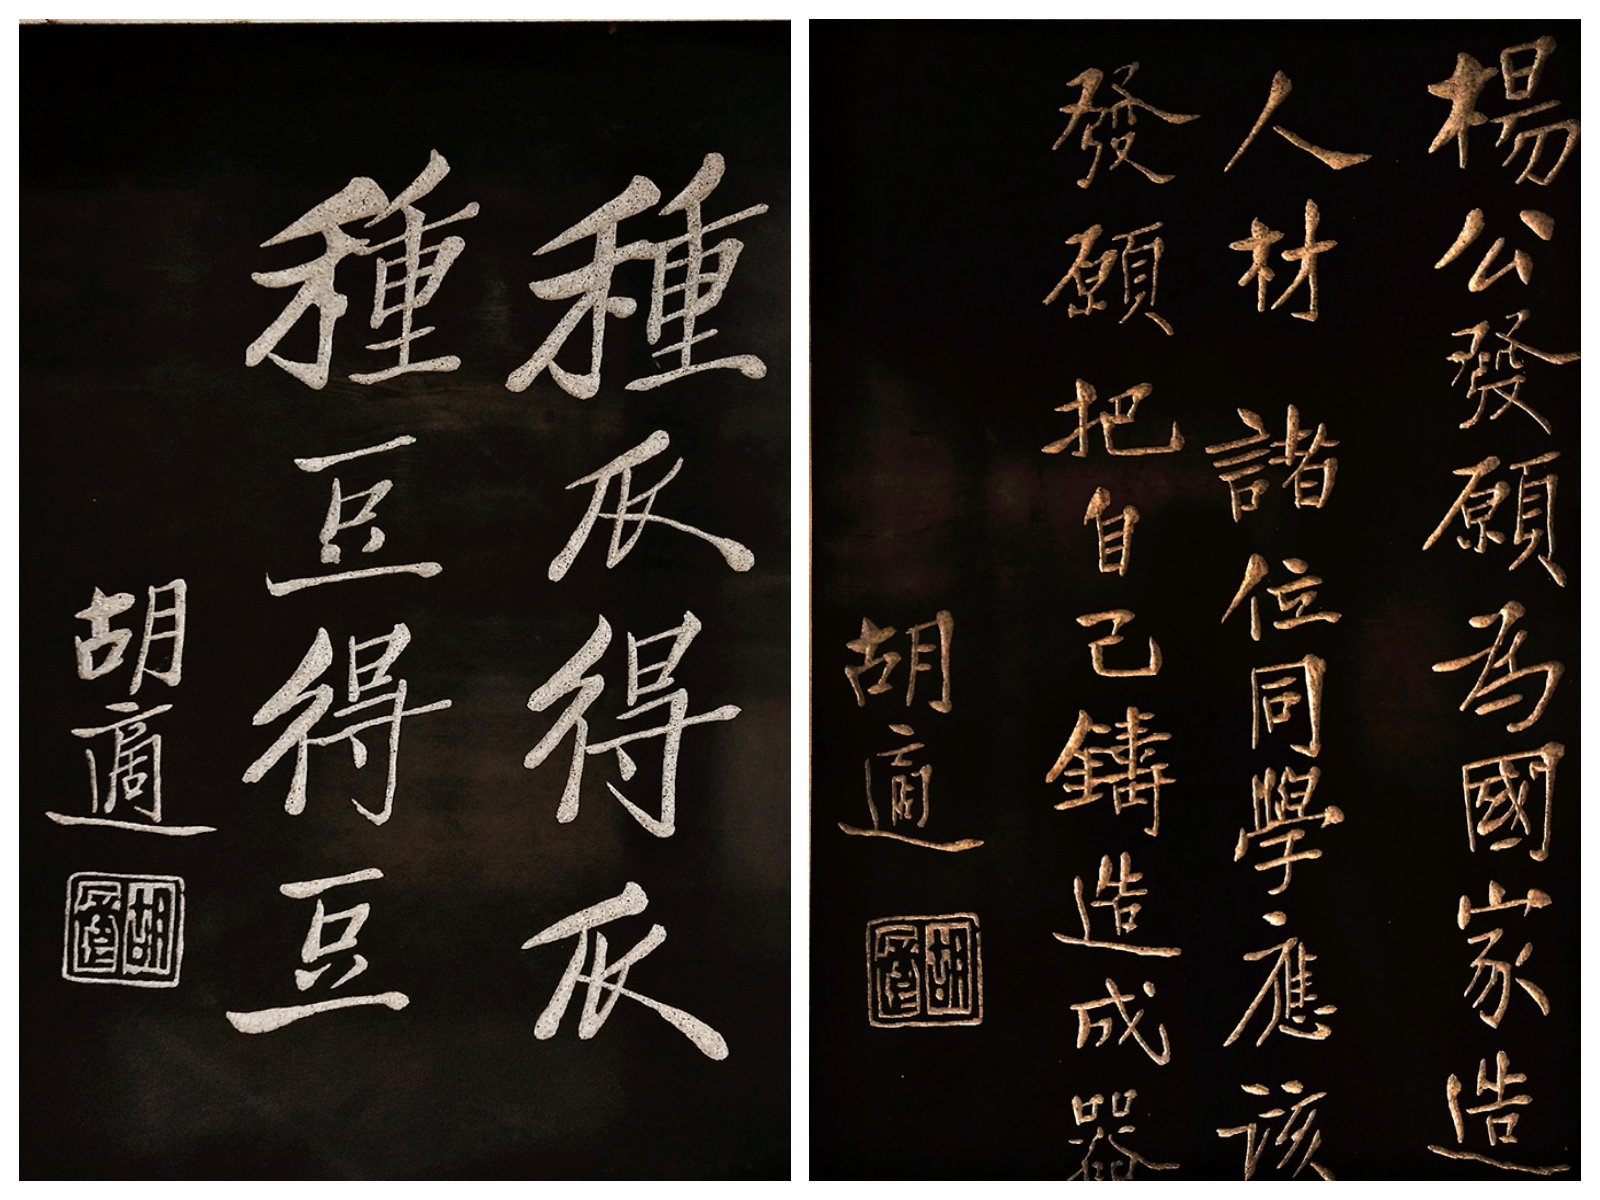 種瓜得瓜
種豆得豆
胡適
胡適
楊公發願為國家造
人材 諸位同學應該
發願把自己鑄造成器
胡適
胡適